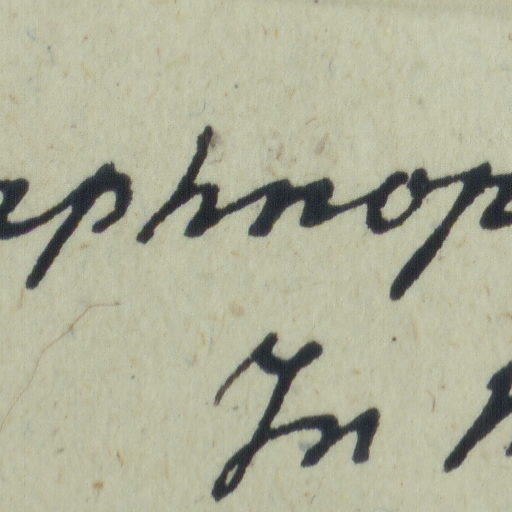 aphnop
In